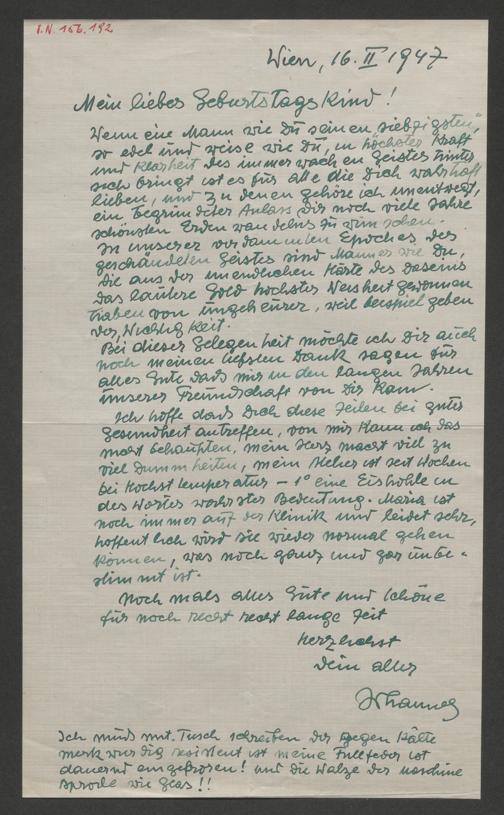 I.N. 156.192
Wien, 16. II 1947
Mein liebes Geburtstagskind!
Wenn eine Mann wie Du seinen „siebzigsten",
so edel und weise wie Du, in höchster Kraft
und Klarheit des immer wachen Geistes hinter
sich bringt ist es für alle die Dich wahrhaft
lieben, und zu denen gehöre ich unentwegt,
ein begründeter Anlass Dir noch viele Jahre
schönsten Erden wandelns zu wünschen.
In unserer verdammten Epoche, des
geschändeten Geistes sind Männer wie Du,
die aus der unendlichen Härte des Daseins
das lautere Gold höchster Weisheit gewonnen
haben von ungeheurer, weil beispiel geben
der, Wichtigkeit.
Bei dieser Gelegenheit möchte ich Dir auch
noch meinen liefsten Dank sagen für
alles Gute dass mir in den langen Jahren
unserer Freundschaft von Dir kam.
Ich hoffe dass Dich diese Zeilen bei guter
Gesundheit antreffen, von mir kann ich das
nicht behaupten, mein Herz macht viel zu
viel Dummheiten, mein Atelier ist seit Wochen
bei Höchst temperatur – 1° eine Eishöhle in
des Wortes wahrster Bedeutung. Maria ist
noch immer auf der Klinik und leidet sehr,
hoffentlich wird sie wieder normal gehen
können, was noch ganz und gar unbe-
stimmt ist.
Noch mals alles Gute und Schöne
für noch recht recht lange Zeit
herzlichst
Dein alter
Johannes
Ich muss mit Tusch schreiben der gegen Kälte
merkwürdig resistent ist meine Füllfeder ist
dauernd eingefroren! und die Walze der Maschine
spröde wie Glas!!